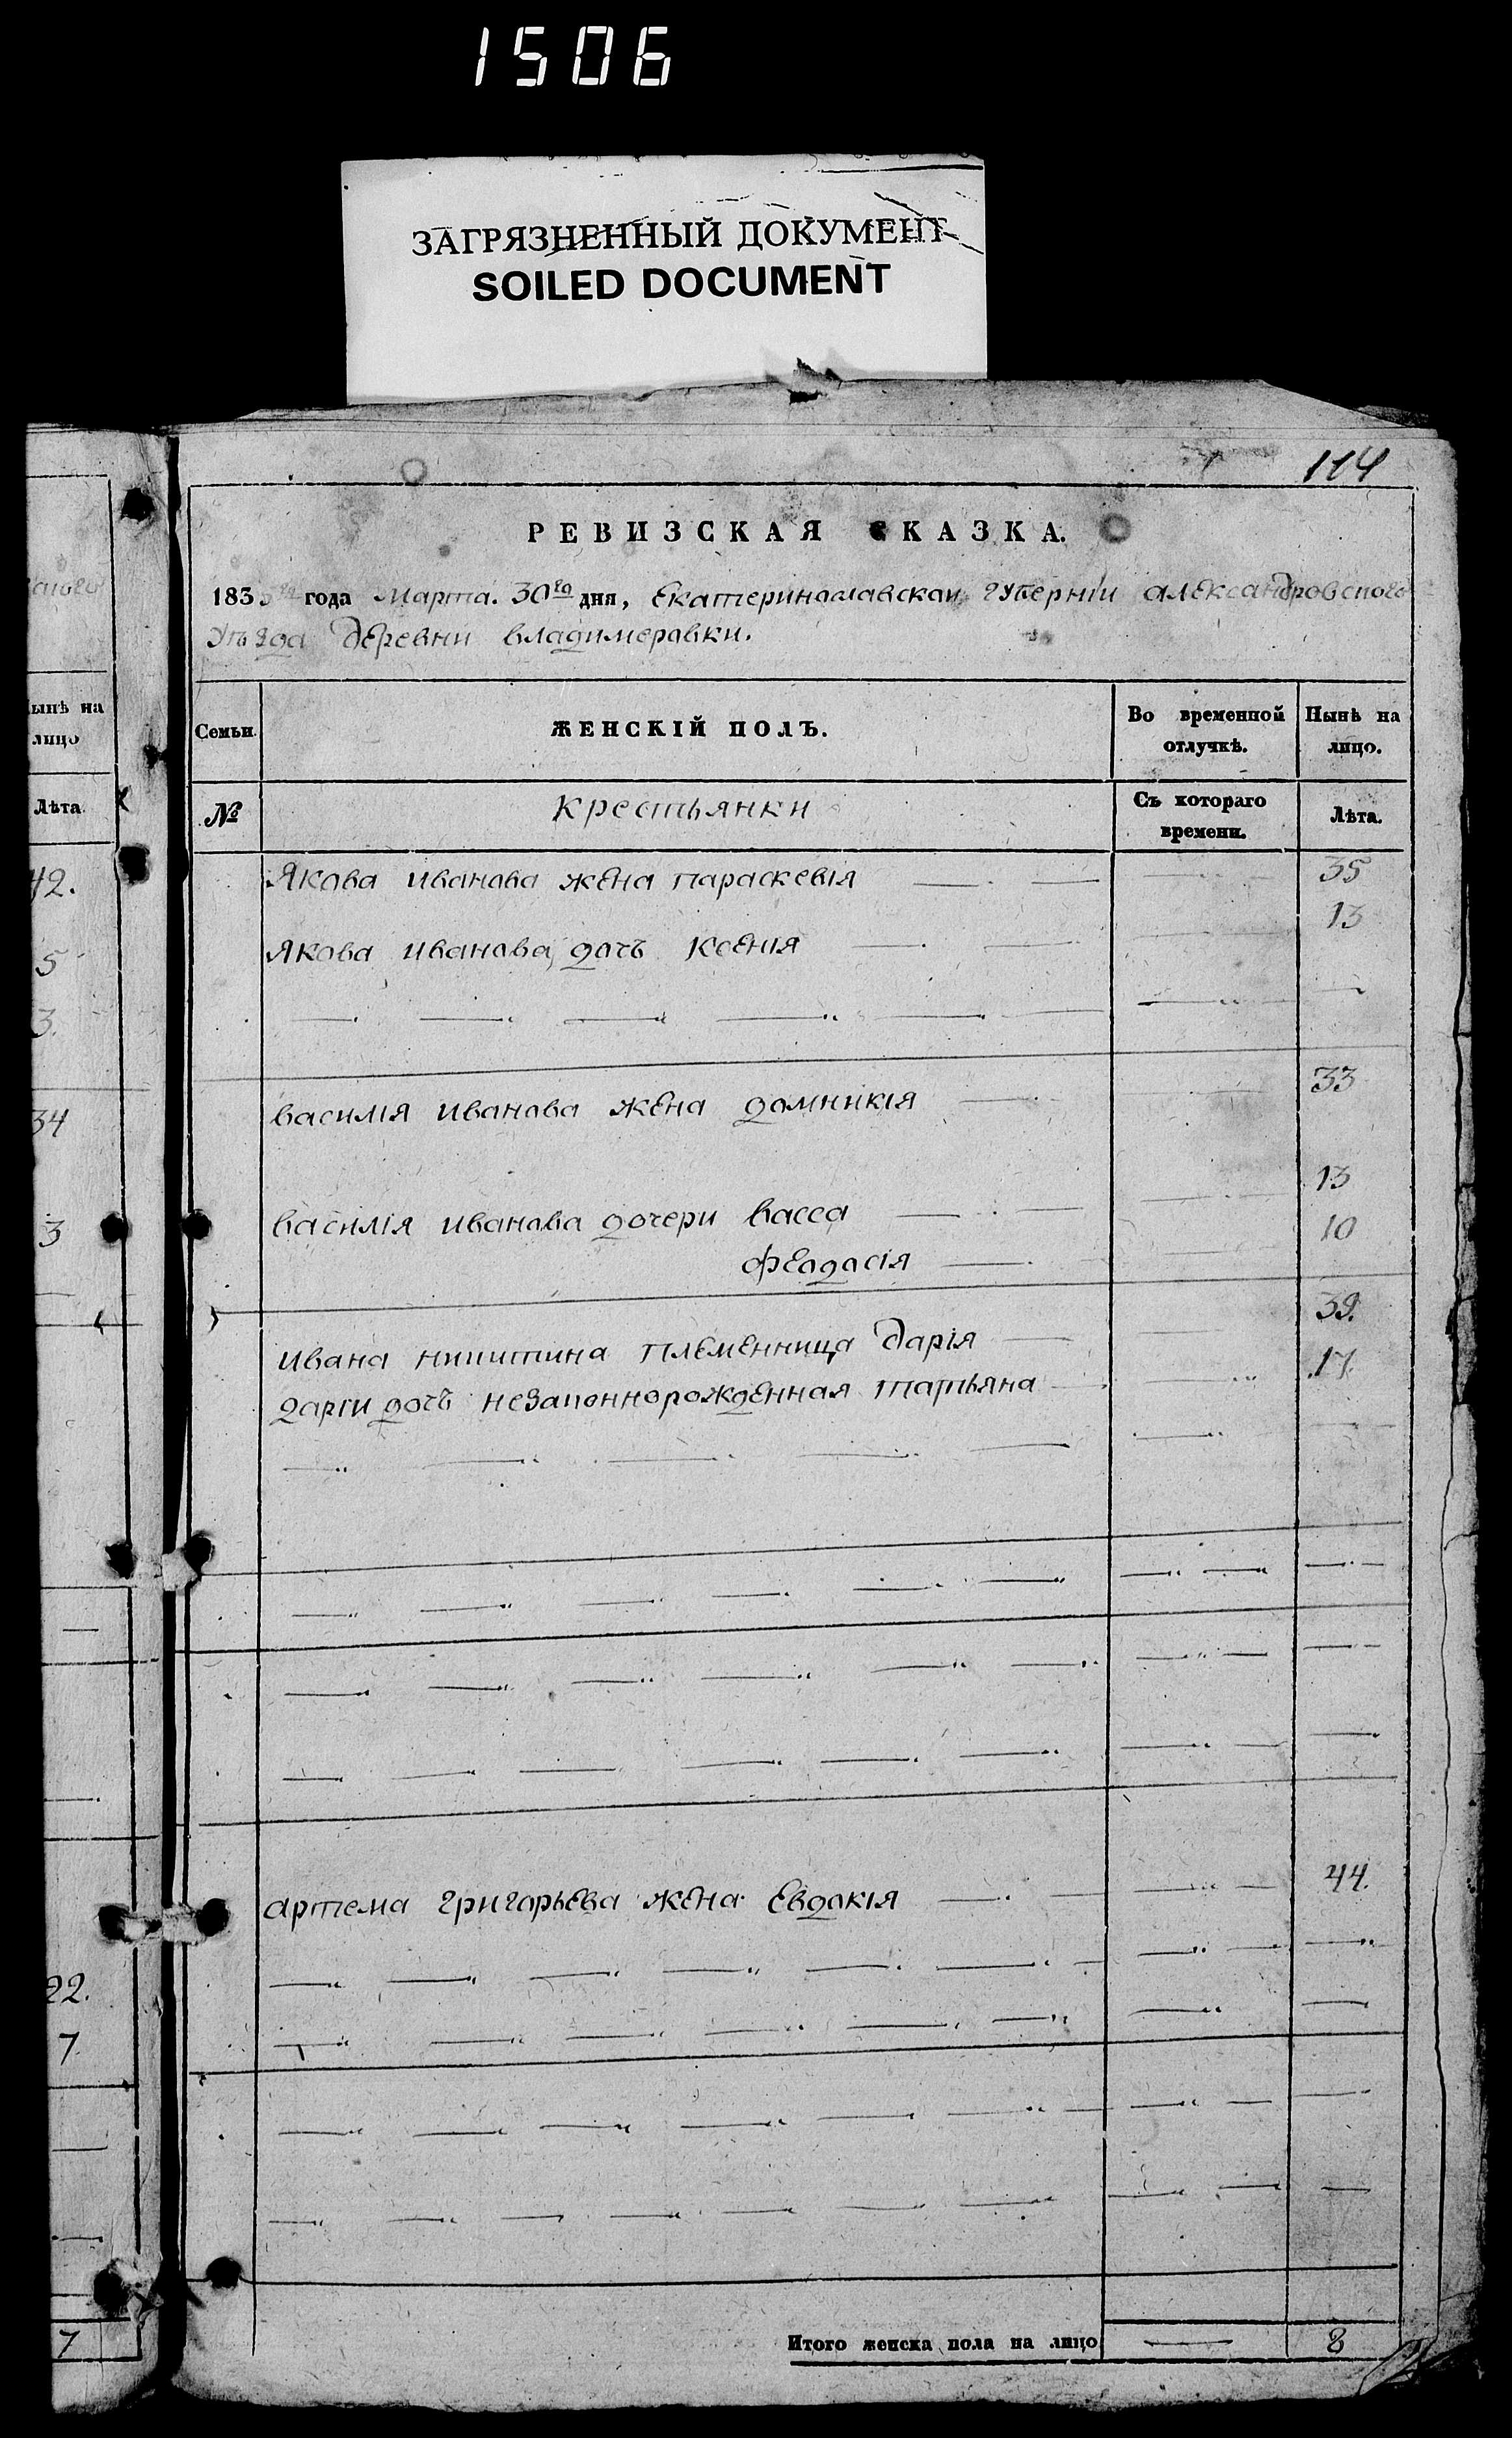 1506
ЗАГРЯЗНЕННЫЙ ДОКУМЕНТ
SOILED DOCUMENT
114
РЕВИЗСКАЯ СКАЗКА.
183 года Марта. 30го дня, Екатеринославской губерніи александровского
Уѣзда деревни владимеровки.
Семьи.
ЖЕНСКІЙ ПОЛЪ.
Во временной отлучкѣ.
Нынѣ на лицо.
№
Крестьянки
Съ котораго времени.
Лѣта.
Якова иванова жена параскевія 35
Якова иванова дочь Ксенія 13
василія иванова жена домникія 33
василія иванова дочери васса 13
феодосія 10
ивана никитина племенница дарія 39.
даріи дочь незаконнорожденная татьяна 17.
артема григорьева жена Евдокія 44.
Итого женска пола на лицо 8
ынѣ на
лицо
Лѣта.
42.
5
3.
34
3
22.
7.
7